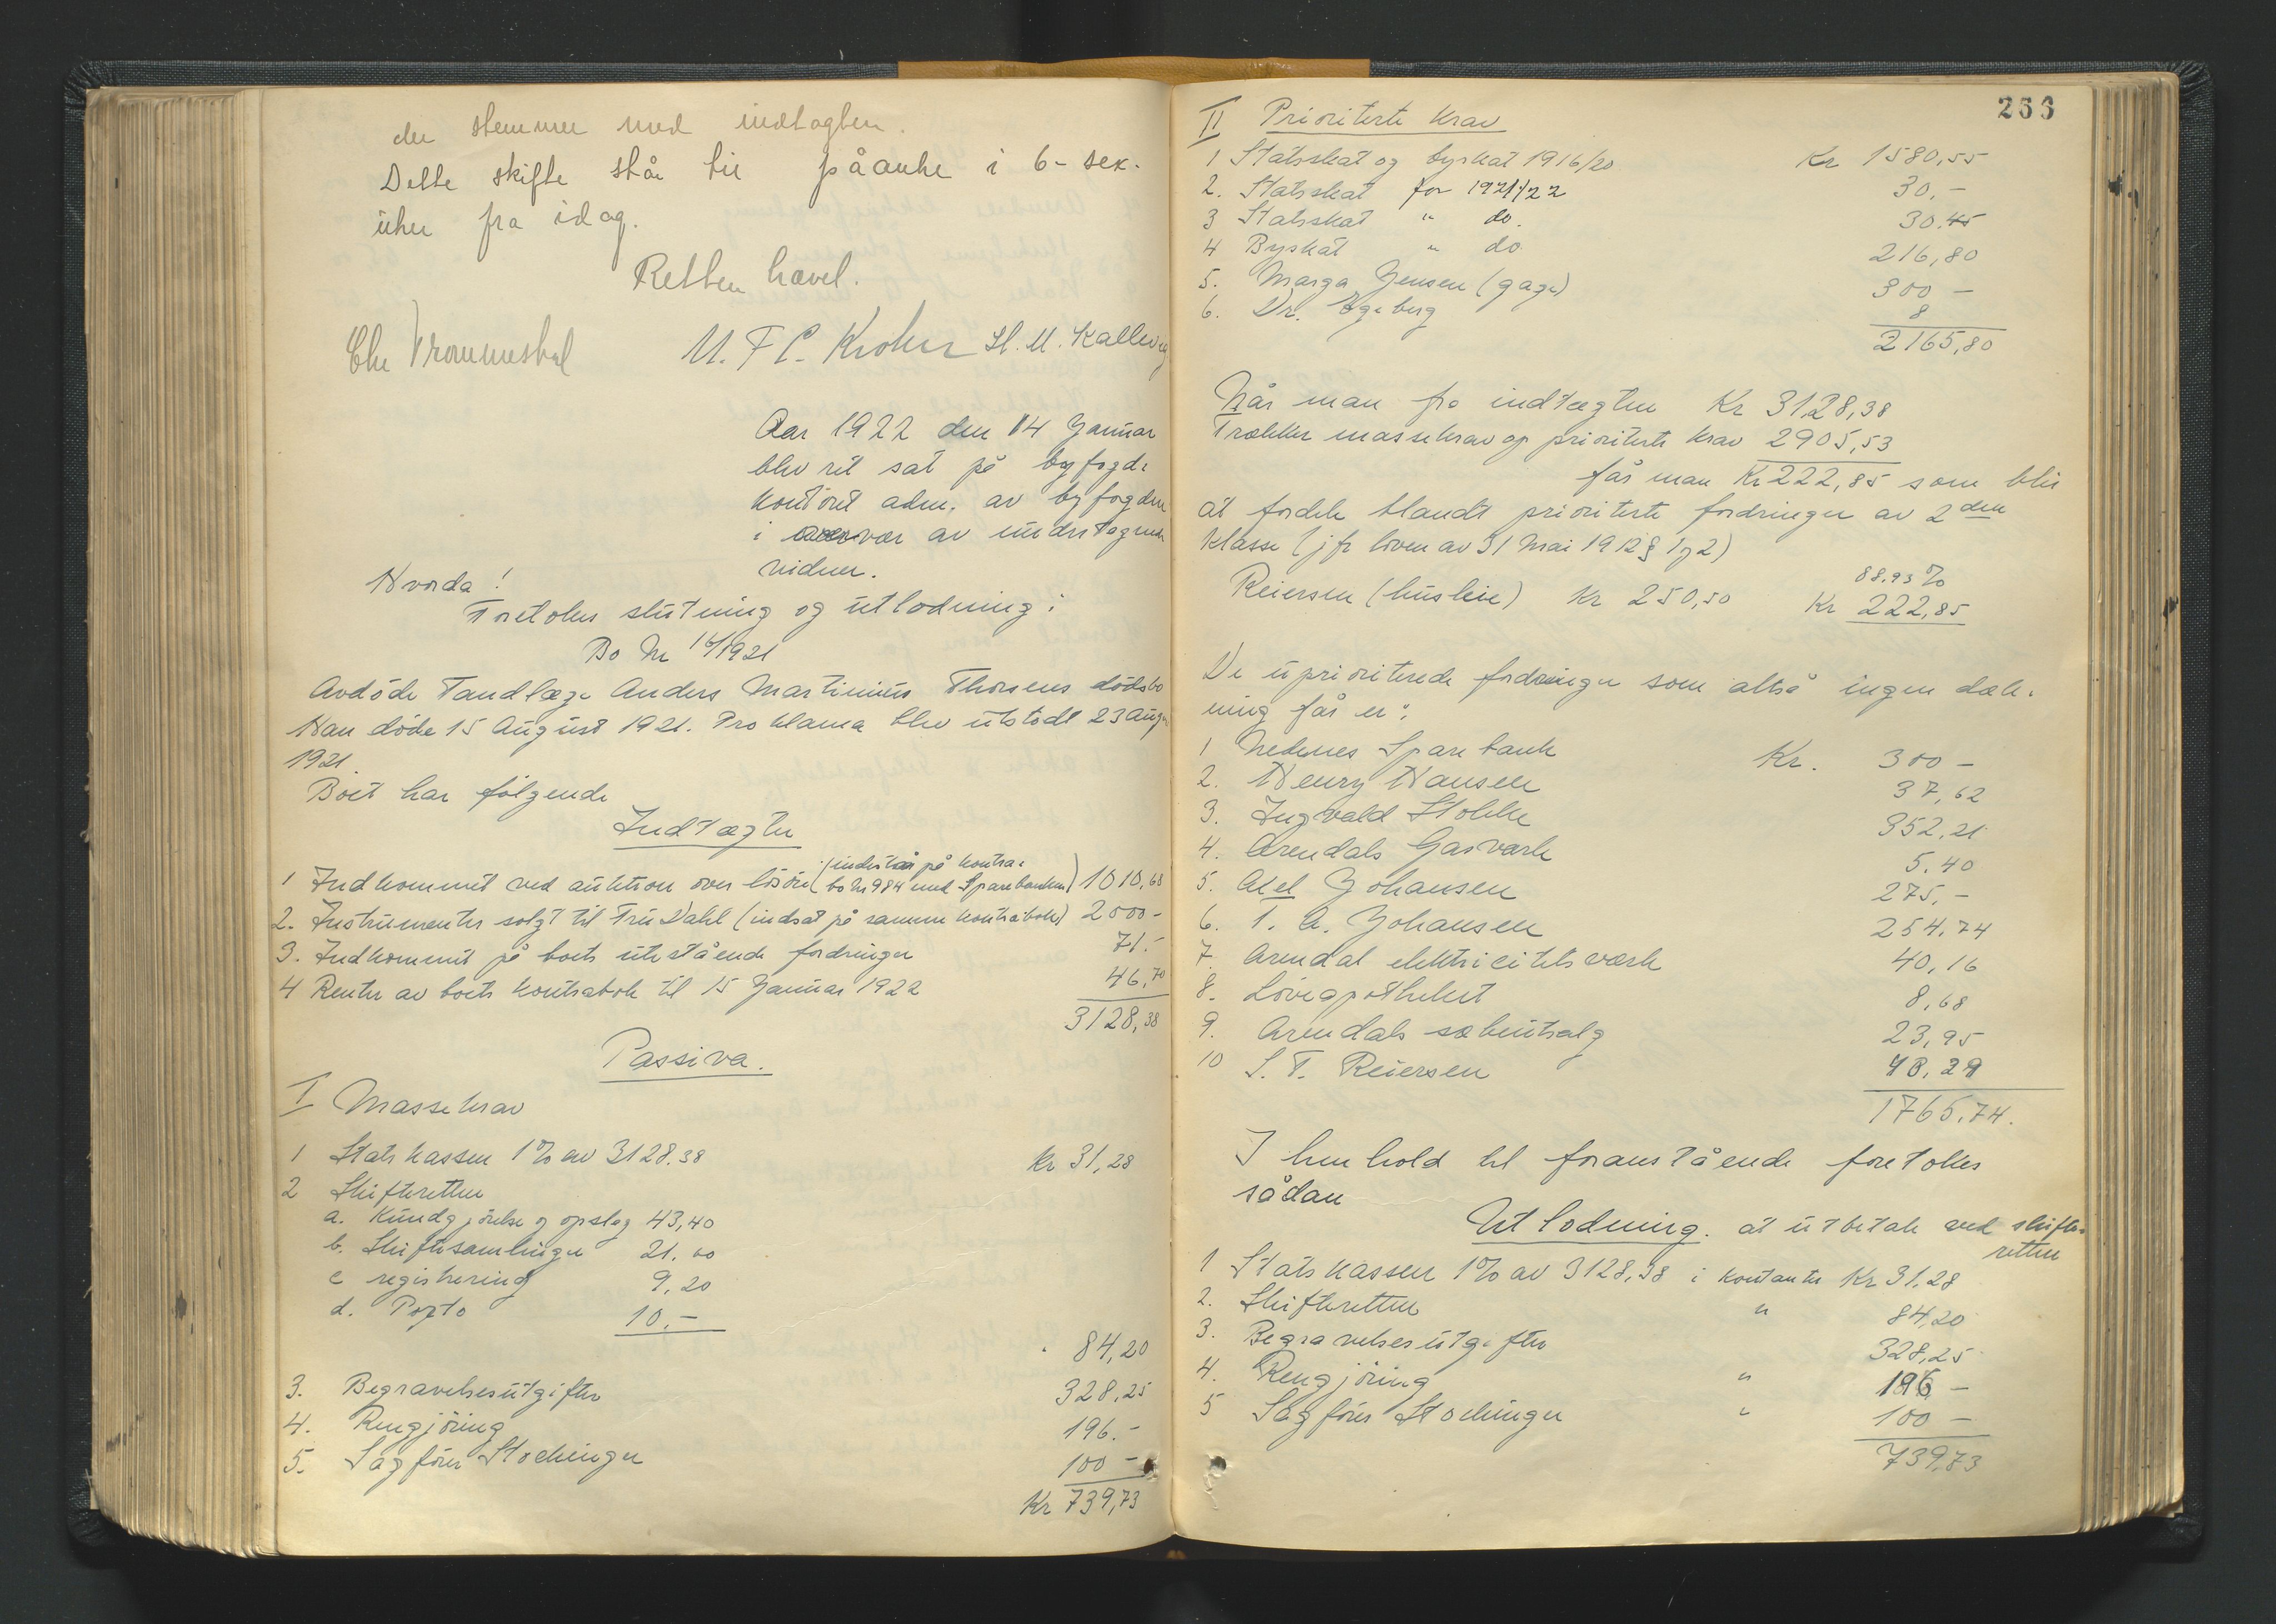 der stemmer med indtagten.
Dette skifte står til påanke i 6- sex-
uker fra idag.
Retten hævet.
Chr Trommestad U. F C. Krohn H. M. Kallevig
Aar 1922 den 14 Januar
blev ret sat på byfogd-
kontoret adm. av byfogden
i overvær av undertegnede
vidner.
Hvorda!
Foretokes slutning og utlodning i
Bo Nr 16/1921
Avdöde Tandlæge Anders Martinius Thorsens dödsbo
Han döde 15 August 1921. Proklama blev utstedt 23 Augu
1921.
Boet har følgende
Indtægter
1 Indkommet ved auktion over lösöre (indestår på kontra-
bo Nr 984 med Sparebanken) 1010,68
2. Instrumenter solgt til Fru Dahl (indsat på samme kontrabok) 2000-
3. Indkommet på boets utestående fordringer 71.-
4 Renter av boets kontrabok til 15 Januar 1922 46,70
3128,38
Passiva.
I Massekrav
1 Statskassen 1% av 3128.38 Kr 31,28
2 Skifteretten
a. Kundgjörelse og opslag 43,40
b. Skiftesamlinger 21.60
c registrering 9,20
d. Porto 10.-
84,20
3. Begravelsesutgifter 328,25
4. Rengjöring 196.-
5. Sagförer Stochinger 100 -
Kr 739,73
256
II Prioriterte Krav
1 Statsskat og byskat 1916/20 Kr 1580,55
2. Statsskat for 1921/22 30.-
3 Statsskat " do. 30.45
4 Byskat " do. 216,80
5. Marga Jensen (gage) 300 -
6. Dr. Egeberg 8
2165,80
Når man fra indtægten Kr 3128,38
Trækker massekrav og prioriterte krav 2905,53
får man Kr 222,85 som blir
at fordele blandt prioriterte fordringer av 2den
klasse (jfr loven av 31 Mai 1912 § 1 2)
88,93%
Reiersen (husleie) Kr 250,50 Kr 222,85
De uprioriterede fordringer som altså ingen dæk-
ning får er:
1 Nedenes Sparebank Kr. 300 -
2. Henry Hansen 37,62
3. Ingvald Stokke 352,21
4. Arendals Gasværk 5.40
5. Axel Johansen 275.-
6. T. A. Johansen 254,74
7. Arendal elektricitetsværk 40,16
8. Löveapotheket 8,68
9. Arendals sæbeutsalg 23,95
10 S. T. Reiersen 48,29
1765,74.
I henhold til foranstående foretokes
sådan
Utlodning. at utbetale ved skifte-
retten
1 Statskassen 1% av 3128,38 i kontanter Kr 31.28
2. Skifteretten " 84,20
3. Begravelsesutgifter 328,25
4. Rengjöring " 196 -
5 Sagförer Stochinger " 100 -
739,73